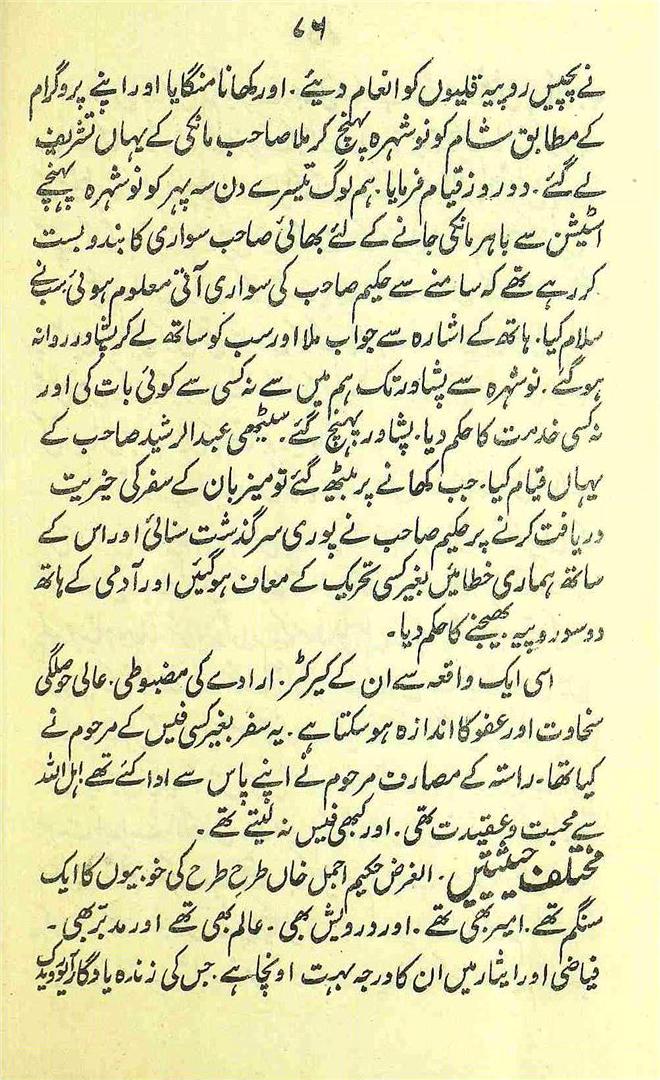 ۷۶
نے پچیس روپیہ قلیوں کو انعام دیئے۔ اور کھانا منگایا اور اپنے پروگرام
کے مطابق شام کو نوشہرہ پہنچ کر ملا صاحب مانکی کے یہاں تشریف
لے گئے۔ دو روز قیام فرمایا۔ ہم لوگ تیسرے دن سہ پہر کو نوشہرہ پہنچے
اسٹیشن سے باہر مانکی جانے کے لئے بھائی صاحب سواری کا بندوبست
کر رہے تھے کہ سامنے سے حکیم صاحب کی سواری آتی معلوم ہوئی سب نے
سلام کیا۔ ہاتھ کے اشارہ سے جواب ملا اور سب کو ساتھ لے کر پشاور روانہ
ہو گئے۔ نوشہرہ سے پشاور تک ہم میں سے نہ کسی سے کوئی بات کی اور
نہ کسی خدمت کا حکم دیا۔ پشاور پہنچ گئے۔ سیٹھی عبدالرشید صاحب کے
یہاں قیام کیا۔ جب کھانے پر بیٹھ گئے تو میزبان کے سفر کی خیریت
دریافت کرنے پر حکیم صاحب نے پوری سرگذشت سنائی اور اس کے
ساتھ ہماری خطائیں بغیر کسی تحریک کے معاف ہو گئیں اور آدمی کے ہاتھ
دو سو روپیہ بھیجنے کا حکم دیا۔
اسی ایک واقعہ سے ان کے کیرکٹر۔ ارادے کی مضبوطی۔ عالی حوصلگی
سخاوت اور عفو کا اندازہ ہو سکتا ہے۔ یہ سفر بغیر کسی فیس کے مرحوم نے
کیا تھا۔ راستہ کے مصارف مرحوم نے اپنے پاس سے ادا کئے تھے اہل اللہ
سے محبت و عقیدت تھی۔ اور کبھی فیس نہ لیتے تھے۔
مختلف حیثیتیں۔ الغرض حکیم اجمل خاں طرح طرح کی خوبیوں کا ایک
سنگم تھے۔ امیر بھی تھے۔ اور درویش بھی۔ عالم بھی تھے اور مدبر بھی۔
فیاضی اور ایثار میں ان کا درجہ بہت اونچا ہے۔ جس کی زندہ یادگار آیورویدک